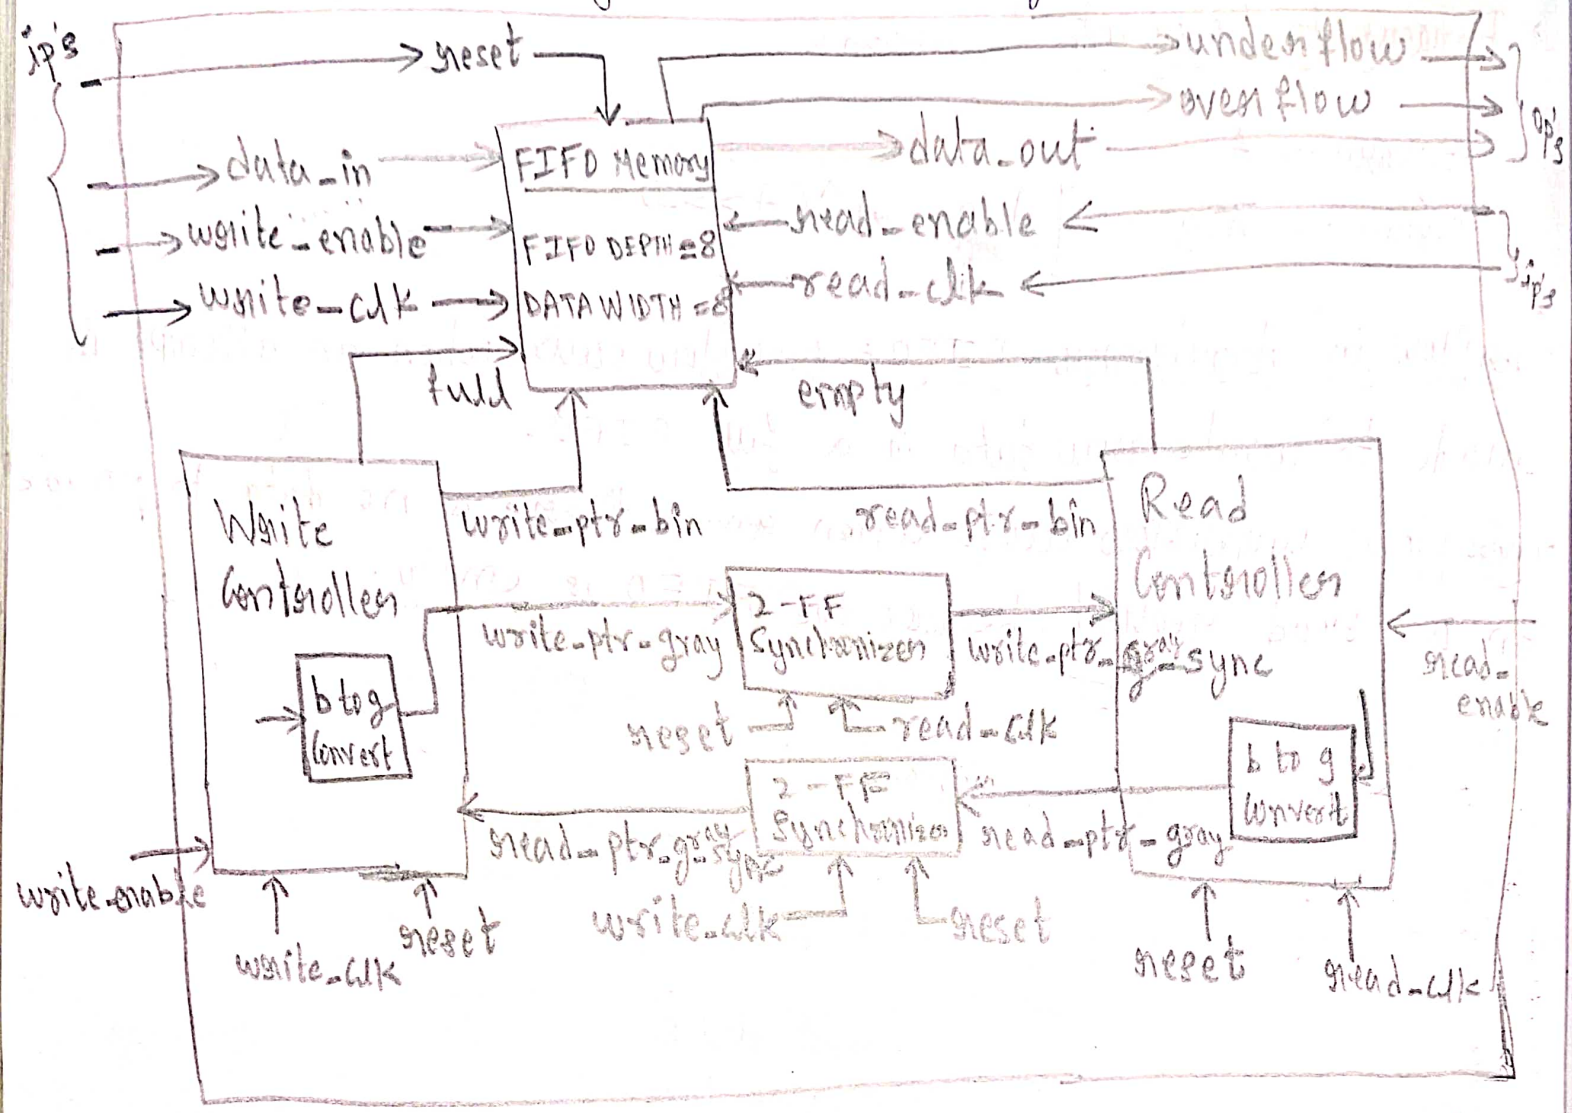 ip's
reset
underflow
overflow
op's
data_in
FIFO Memory
data_out
write_enable
FIFO DEPTH = 8
read_enable
write_clk
DATA WIDTH = 8
read_clk
ip's
full
empty
Write
Controller
write_ptr_bin
read_ptr_bin
Read
Controller
write_ptr_gray
2-FF
Synchronizer
write_ptr_gray_sync
read_
enable
b to g
Convert
reset
read_clk
b to g
Convert
2-FF
Synchronizer
read_ptr_gray_sync
read_ptr_gray
write_enable
write_clk
reset
write_clk
reset
reset
read_clk